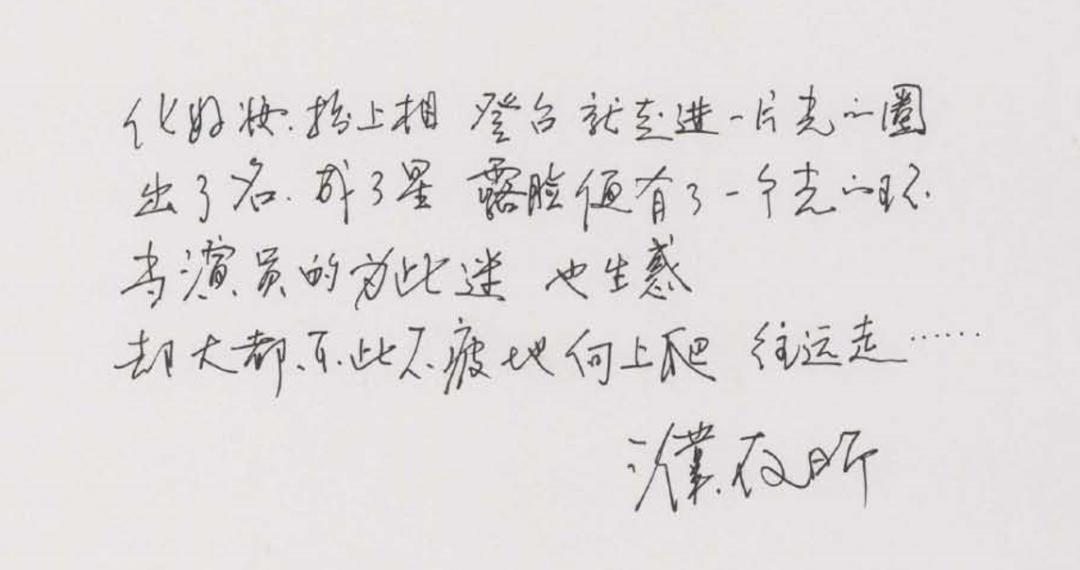 化好妆.扮上相 登台就走进一片光的圈
出了名.成了星 露脸便有了一个光的环
当演员的为此迷 也生惑
却大都.乐此不疲地向上爬 往远走……
濮存昕